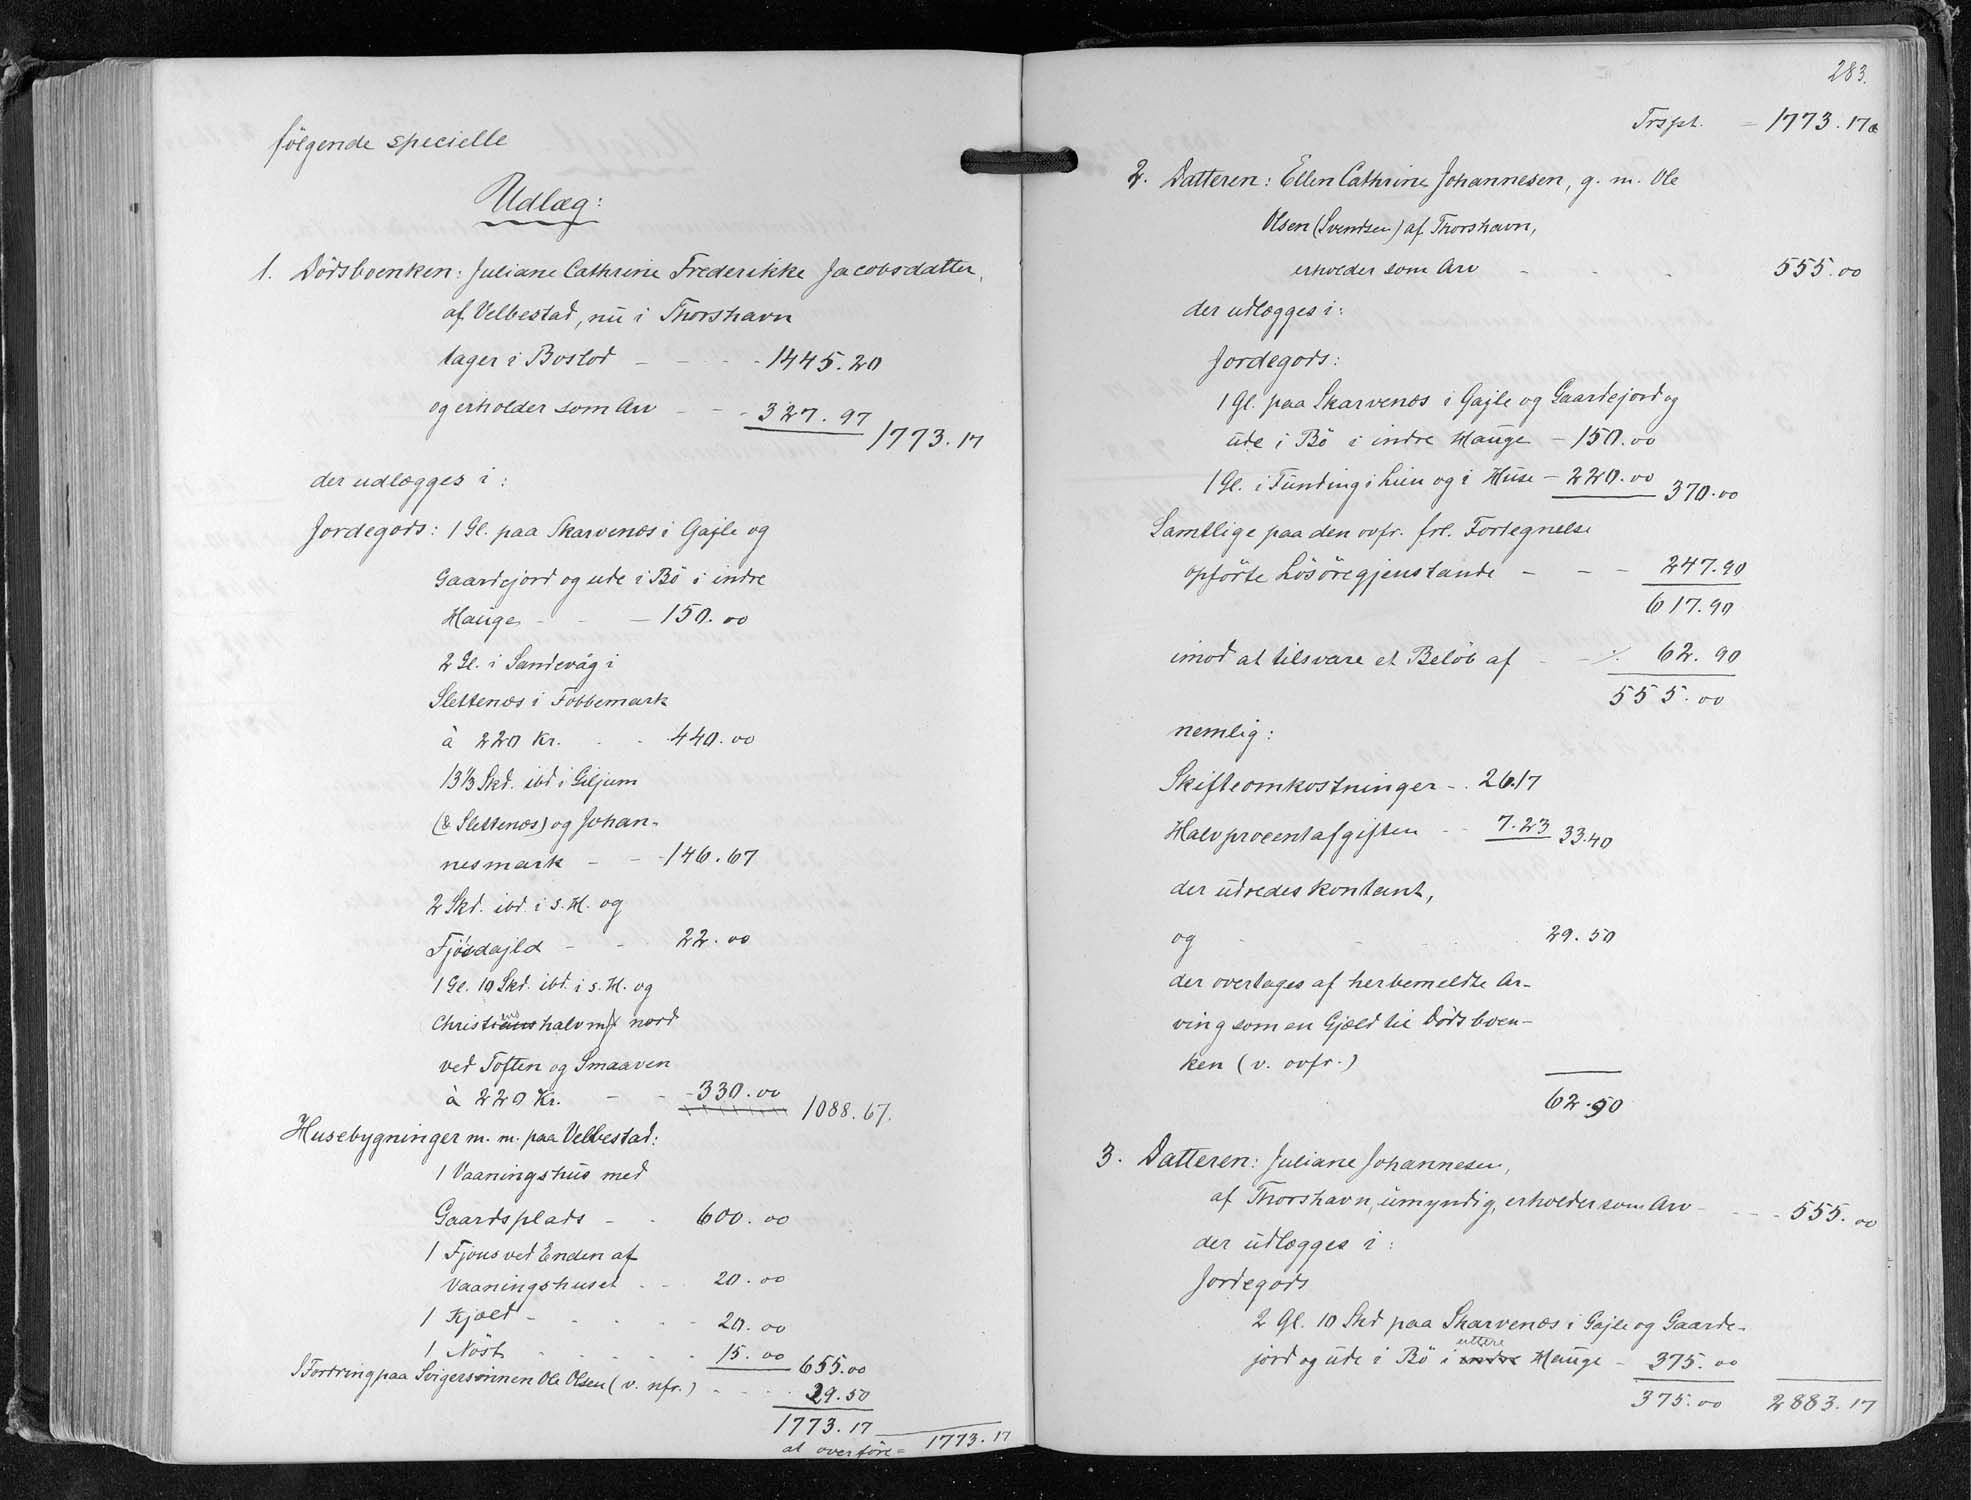 følgende specielle
Udlæg:
1. Dödsboenken: Juliane Cathrine Frederikke Jacobsdatter,
af Velbestad, nu i Thorshavn
tager i Boslod - - - - 1445.20
og erholder som Arv - - - 327.97
1773.17
der udlægges i:
Jordegods: 1 Gl. paa Skarvenæs i Gajle og
Gaardejord og ude i Bö i indre
Hauge - - - 150.00
2 Gl. i Sandevåg i
Slettenæs i Fobbemark
à 220 Kr. - - 440.00
13 1/3 Skd. ibd i Giljum
(& Slettenæs) og Johan-
nesmark - - 146.67
2 Skd. ibd. i s. H. og
Fjösdajld - - 22.00
1 Gl. 10 Skd. ibd. i s. H. og
halvm nord
ved Toften og Smaaven
à 220 Kr. - - 330.00 1088.67.
Husebygninger m. m. paa Velbestad:
1 Vaaningshus med
Gaardsplads - - 600.00
1 Fjøus ved Enden af
Vaaningshuset - - 20.00
1 Kjæld - - - - - 20.00
1 Nöst - - - - - 15.00 655.00
I Fordring paa Svigersønnen Ole Olsen (v. nfr.) - - - - 29.50
1773.17
at overføre = 1773.17
283.
Trspt. = 1773.17
2. Datteren: Ellen Cathrine Johannesen, g. m. Ole
Olsen (Svendsen) af Thorshavn,
erholder som Arv - - - 555.00
der udlægges i:
Jordegods:
1 Gl. paa Skarvenæs i Gajle og Gaardejord og
ude i Bö i indre Hauge - 150.00
1 Gl. i Funding i Lien og i Huse - 220.00 370.00
Samtlige paa den ovfr. frl. Fortegnelse
opførte Lösöregjenstande - - - 247.90
617.90
imod at tilsvare et Belöb af - - ./. 62.90
555.00
nemlig:
Skifteomkostninger - . 26.17
Halvprocentafgiften - - 7.23 33.40
der udredes kontant,
og - - - 29.50
der overtages af herbemeldte Ar-
ving som en Gjæld til Dödsboen-
ken (v. ovfr.)
62.90
3. Datteren: Juliane Johannesen,
af Thorshavn, umyndig, erholder som Arv - - - - 555.00
der udlægges i:
Jordegods
2 Gl. 10 Skd paa Skarvenæs i Gajle og Gaarde-
jord og ude i Bö i indre yttere Hauge - 375.00
375.00 2883.17